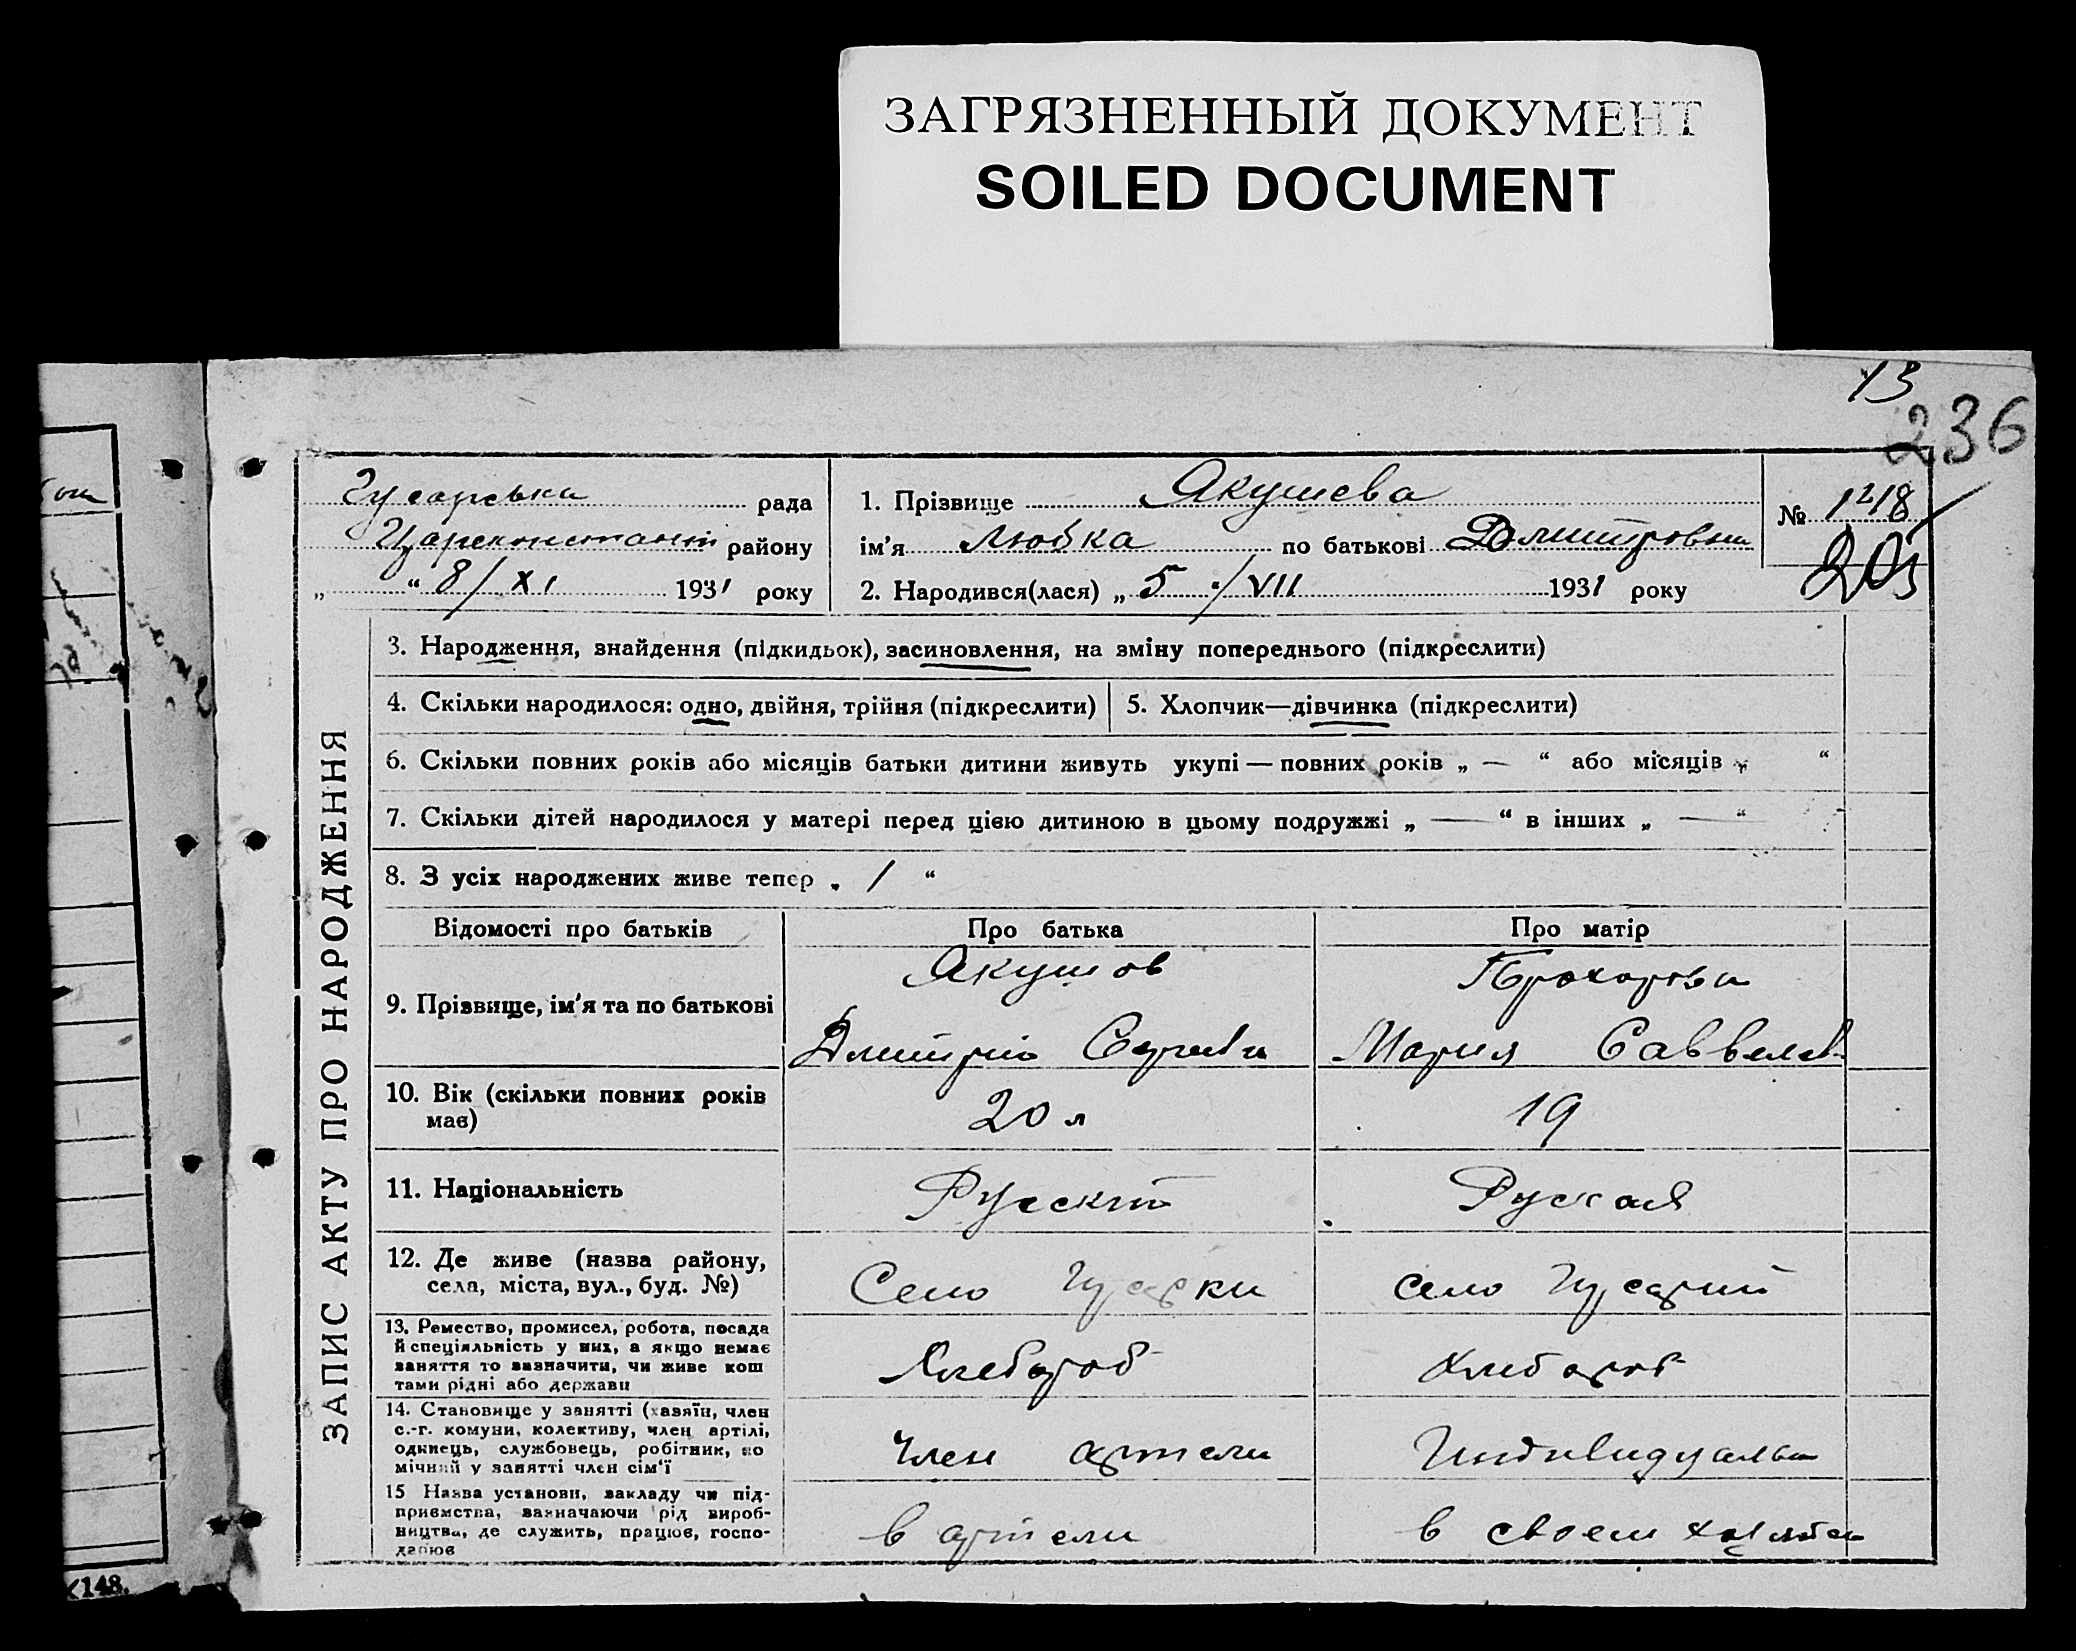 ЗАГРЯЗНЕННЫЙ ДОКУМЕНТ
SOILED DOCUMENT
13
236
Гусарська рада
Цареконстант району
„ “ 8/XI 1931 року
1. Прізвище Якушева
ім'я Любка по батькові Дмитровна
2. Народився(лася) „ 5 /VII 1931 року
№ 1218
205
ЗАПИС АКТУ ПРО НАРОДЖЕННЯ
3. Народження, знайдення (підкидьок), засиновлення, на зміну попереднього (підкреслити)
4. Скільки народилося: одно, двійня, трійня (підкреслити)
5. Хлопчик—дівчинка (підкреслити)
6. Скільки повних років або місяців батьки дитини живуть укупі — повних років „ — “ або місяців „ “
7. Скільки дітей народилося у матері перед цією дитиною в цьому подружжі „ — “ в інших „ — “
8. З усіх народжених живе тепер „ 1 “
Відомості про батьків
Про батька
Про матір
9. Прізвище, ім'я та по батькові
Якушов
Дмитрий
Прохорова
Мария Саввелев
10. Вік (скільки повних років
має)
20 л
19
11. Національність
Русский
Руская
12. Де живе (назва району,
села, міста, вул., буд. №)
Село Гусарки
село Гусарки
13. Ремество, промисел, робота, посада
й спеціяльність у них, а якщо немає
заняття то зазначити, чи живе кош
тами рідні або держави
Хлебороб
Хлебороб
14. Становище у занятті (хазяїн, член
с.-г. комуни, колективу, член артілі,
одинець, службовець, робітник, по
мічний у занятті член сім'ї
Член артели
Индивидуальн
15 Назва установи, закладу чи під-
приємства, зазначаючи рід вироб-
ництва, де служить, працює, госпо-
дарює
в артели
в своем хозяйстве
148.